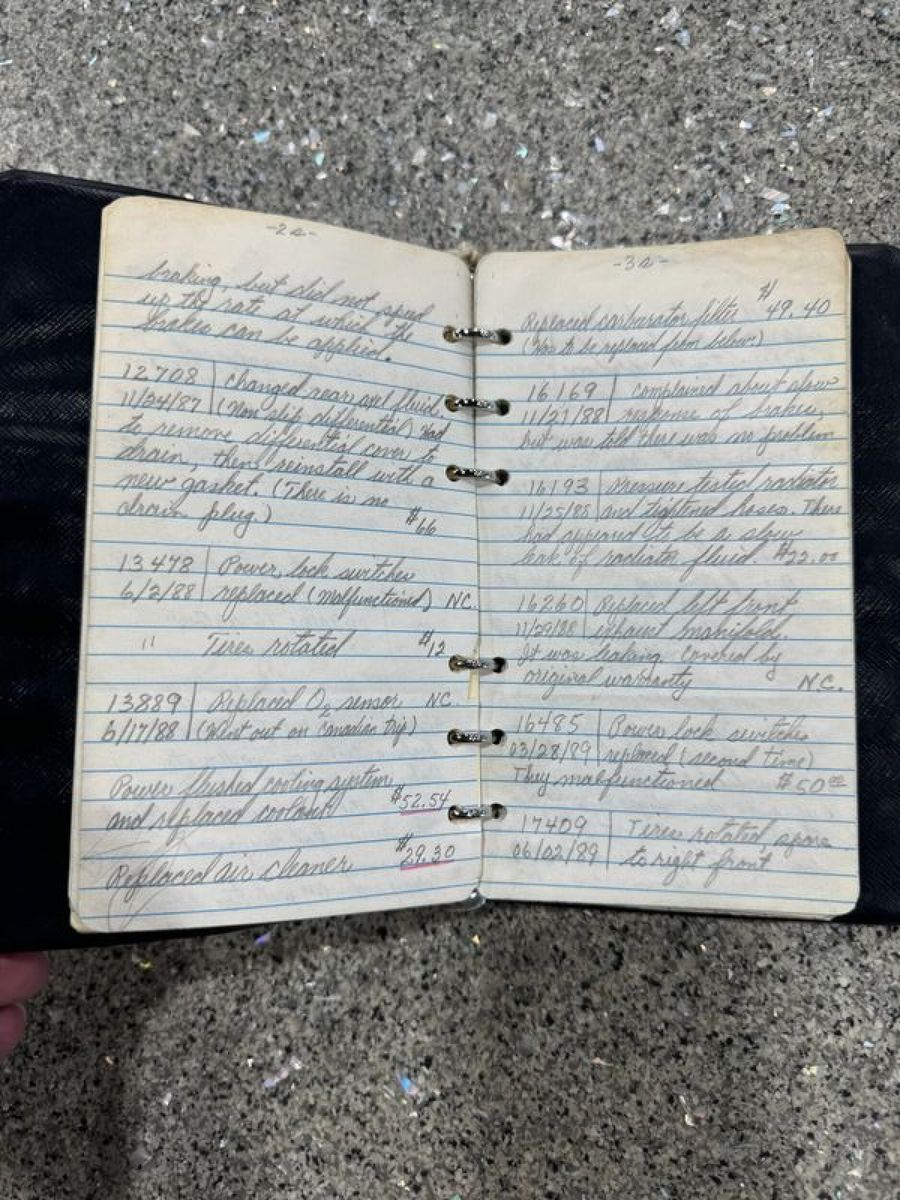 -2a-
braking, but did not speed
up the rate at which the
brakes can be applied.
12708 | Changed rear axel fluid
11/24/87 | (Non slip differential) Had
to remove differential cover to
drain, then reinstall with a
new gasket. (There is no
drain plug.) $66
13478 | Power lock switches
6/2/88 | replaced (malfunctioned) NC.
" Tires rotated $12
13889 | Replaced O2 sensor NC.
6/17/88 | (Went out on Canadian trip)
Power flushed cooling system
and replaced coolant $52.54
Replaced air cleaner $29.30
-3a-
Replaced carburator filter $49.40
(Has to be replaced from below)
16169 | Complained about slow
11/21/88 | response of brakes,
but was told there was no problem
16193 | Pressure tested radiator
11/25/88 | and tightened hoses. There
had appeared to be a slow
leak of radiator fluid. $22.00
16260 | Replaced left front
11/29/88 | exhaust manifold.
It was leaking. Covered by
original warranty N.C.
16485 | Power lock switches
03/28/89 | replaced (second time)
They malfunctioned $50.00
17409 | Tires rotated, spare
06/02/89 | to right front